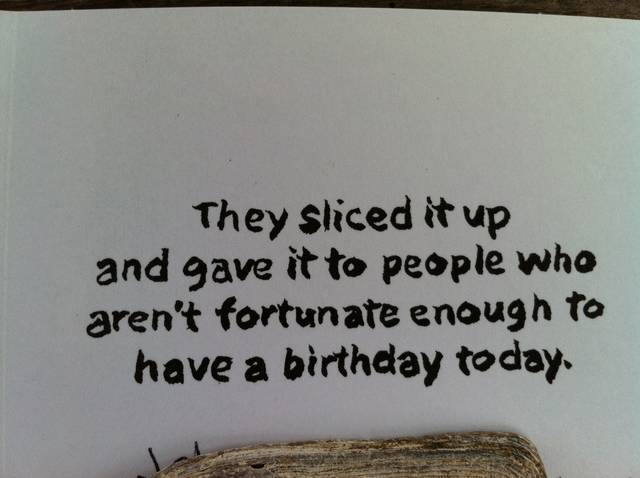 They sliced it up
and gave it to people who
aren't fortunate enough to
have a birthday today.